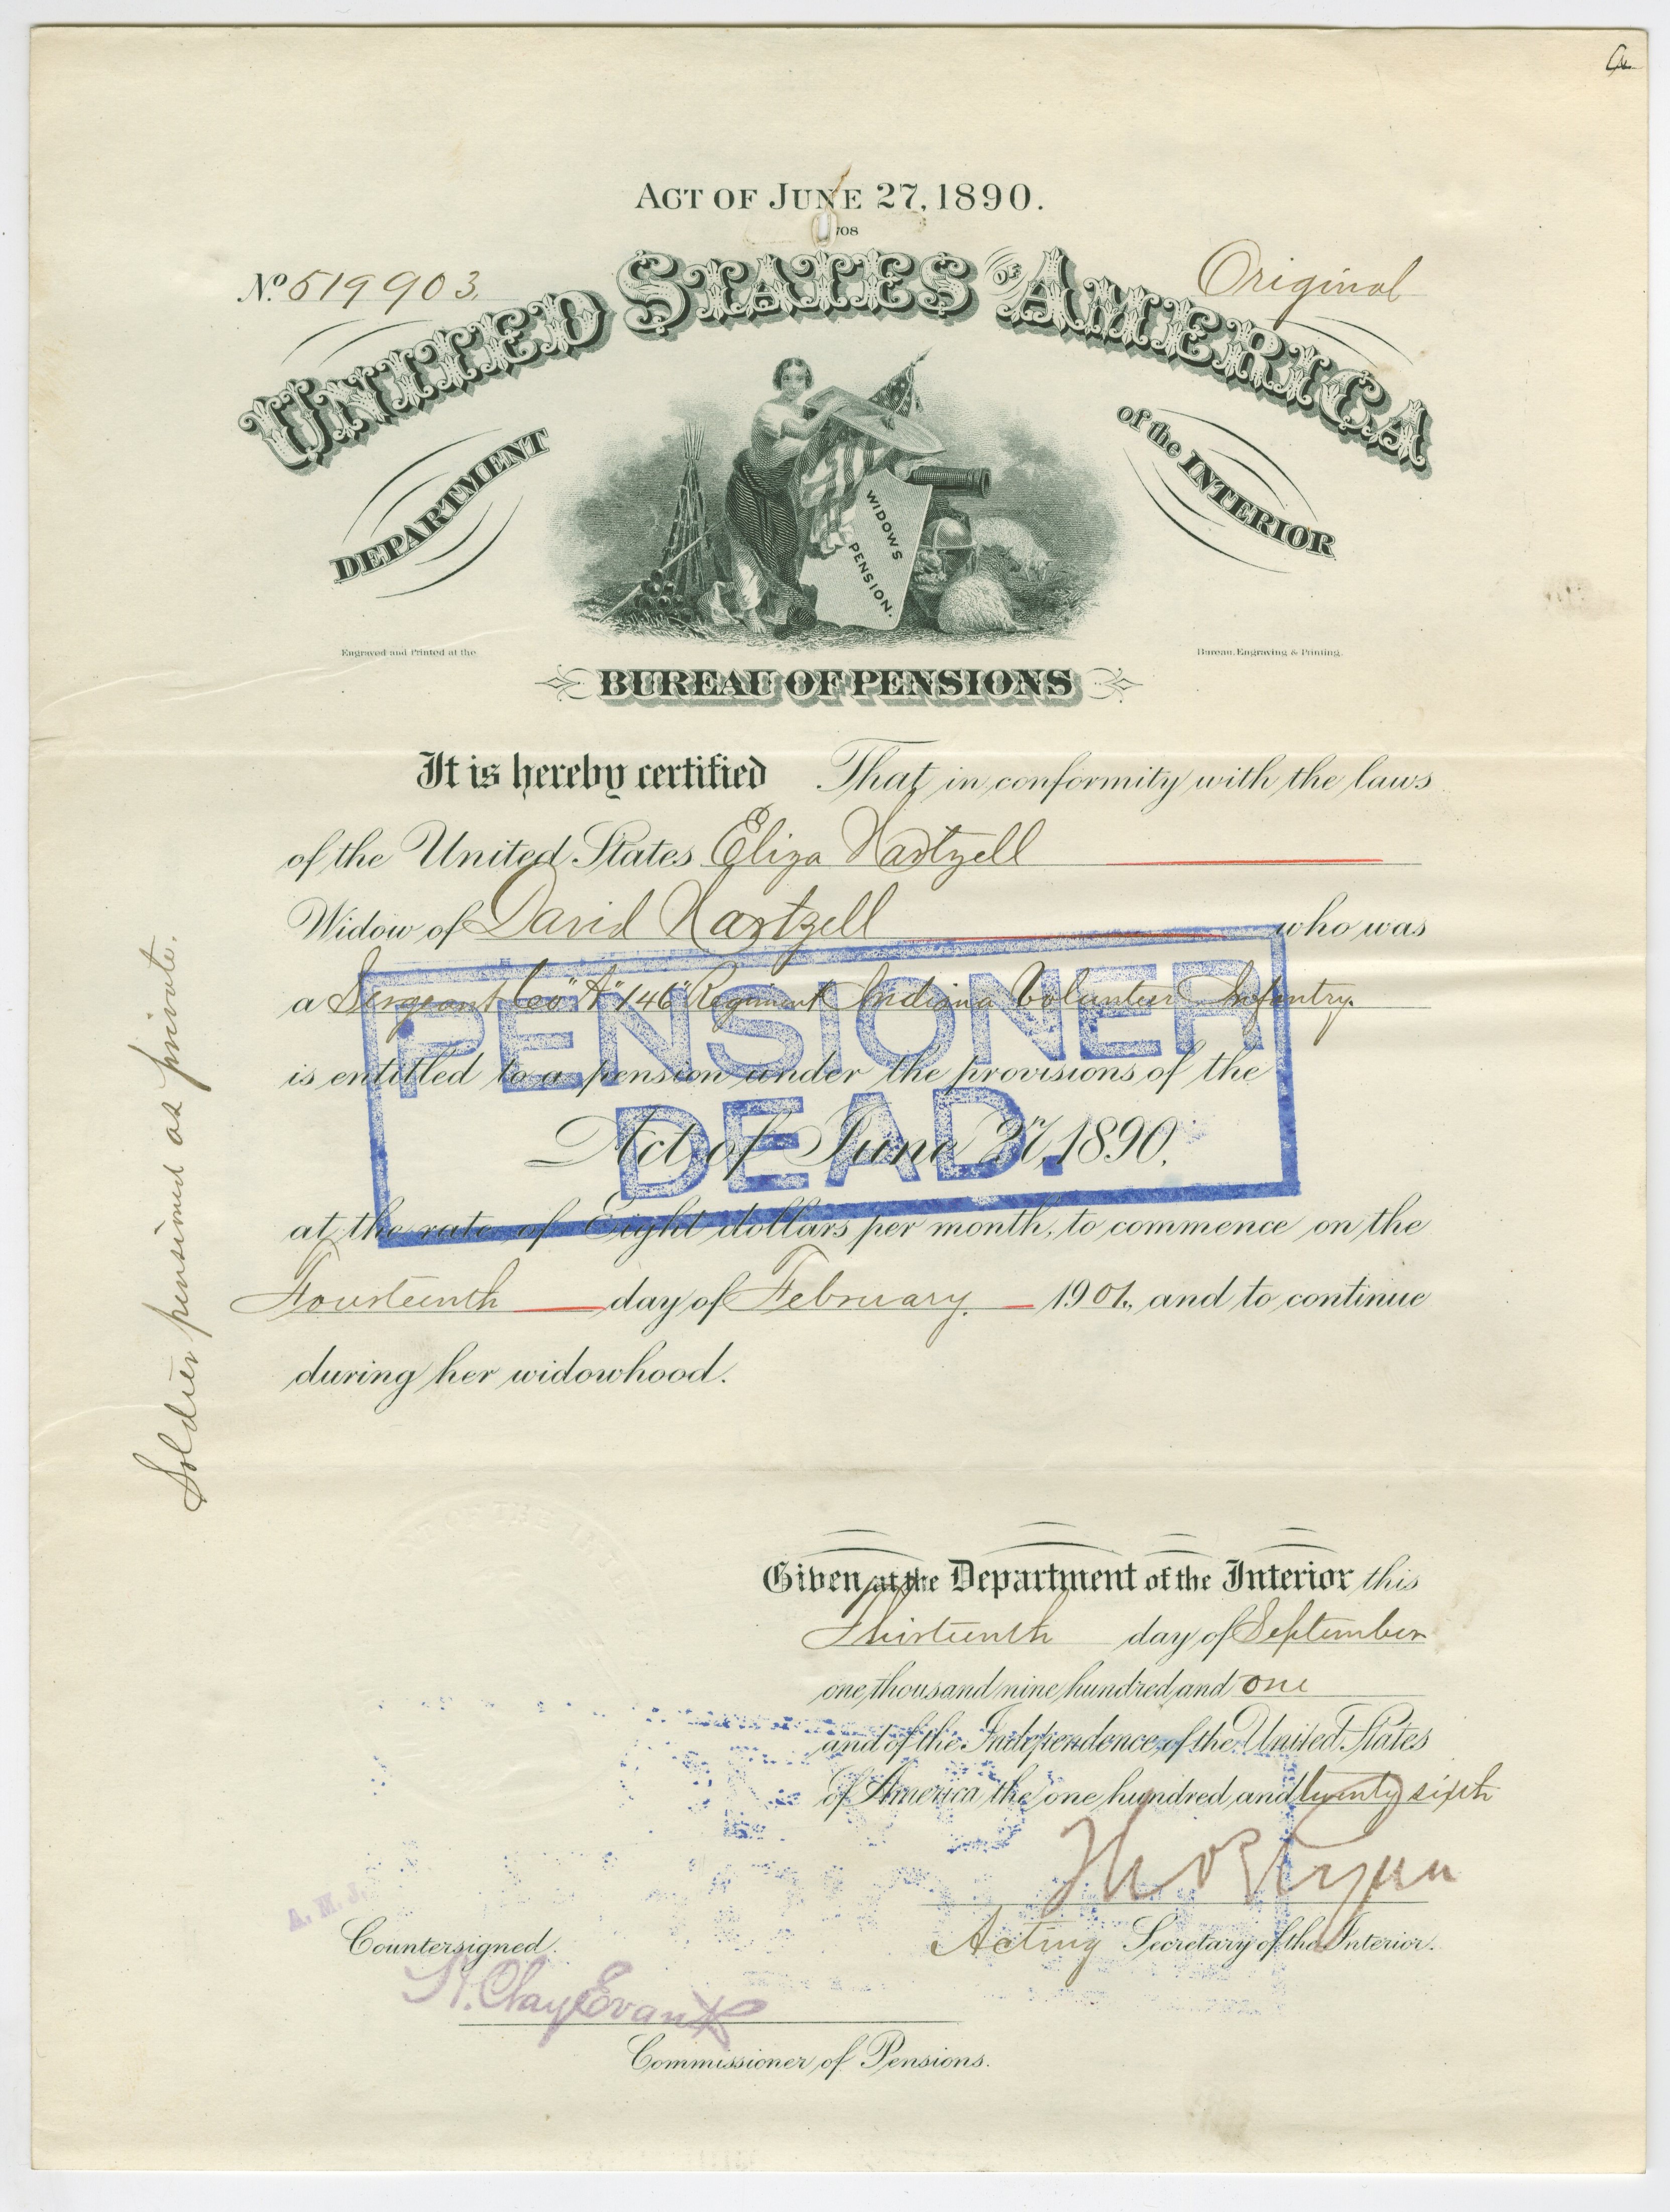 ACT OF JUNE 27, 1890.
No 519903.
Original
UNITED STATES OF AMERICA
DEPARTMENT
of the INTERIOR
WIDOWS
PENSION.
Engraved and Printed at the
Bureau, Engraving & Printing.
BUREAU OF PENSIONS
It is hereby certified That in conformity with the laws
of the United States Eliza Hartzell
Widow of David Hartzell who was
a Sergeant Co "A" 146" Regiment Indiana Volunteer Infantry.
is entitled to a pension under the provisions of the
Act of June 27, 1890,
PENSIONER
DEAD.
at the rate of Eight dollars per month, to commence on the
Fourteenth day of February. 1901, and to continue
during her widowhood.
Soldier pensioned as private.
Given at the Department of the Interior this
Thirteenth day of September
one thousand nine hundred and one
and of the Independence of the United States
of America the one hundred and twenty sixth
Thos Ryan
Acting Secretary of the Interior.
A. M. J.
Countersigned.
H. Clay Evans
Commissioner of Pensions.